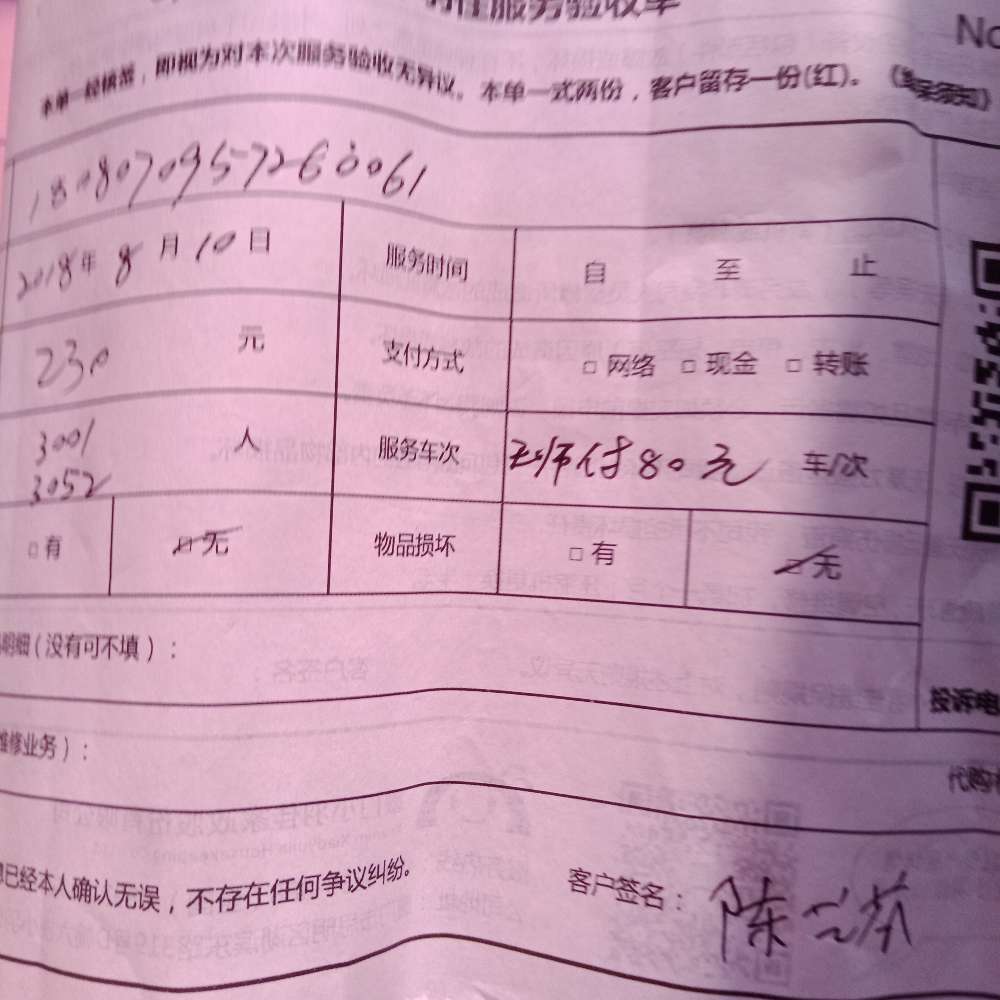 服务验收单
No
本单一经核签，即视为对本次服务验收无异议。本单一式两份，客户留存一份(红)。
1808070957260061
2018年 8 月 10 日 服务时间 自 至 止
230 元 支付方式 □ 网络 □ 现金 □ 转账
3001 人 服务车次 付80元 车/次
3052
□ 有 □ 无 物品损坏 □ 有 □ 无
明细（没有可不填）：
投诉电
维修业务）：
代购
已经本人确认无误，不存在任何争议纠纷。
客户签名：陈